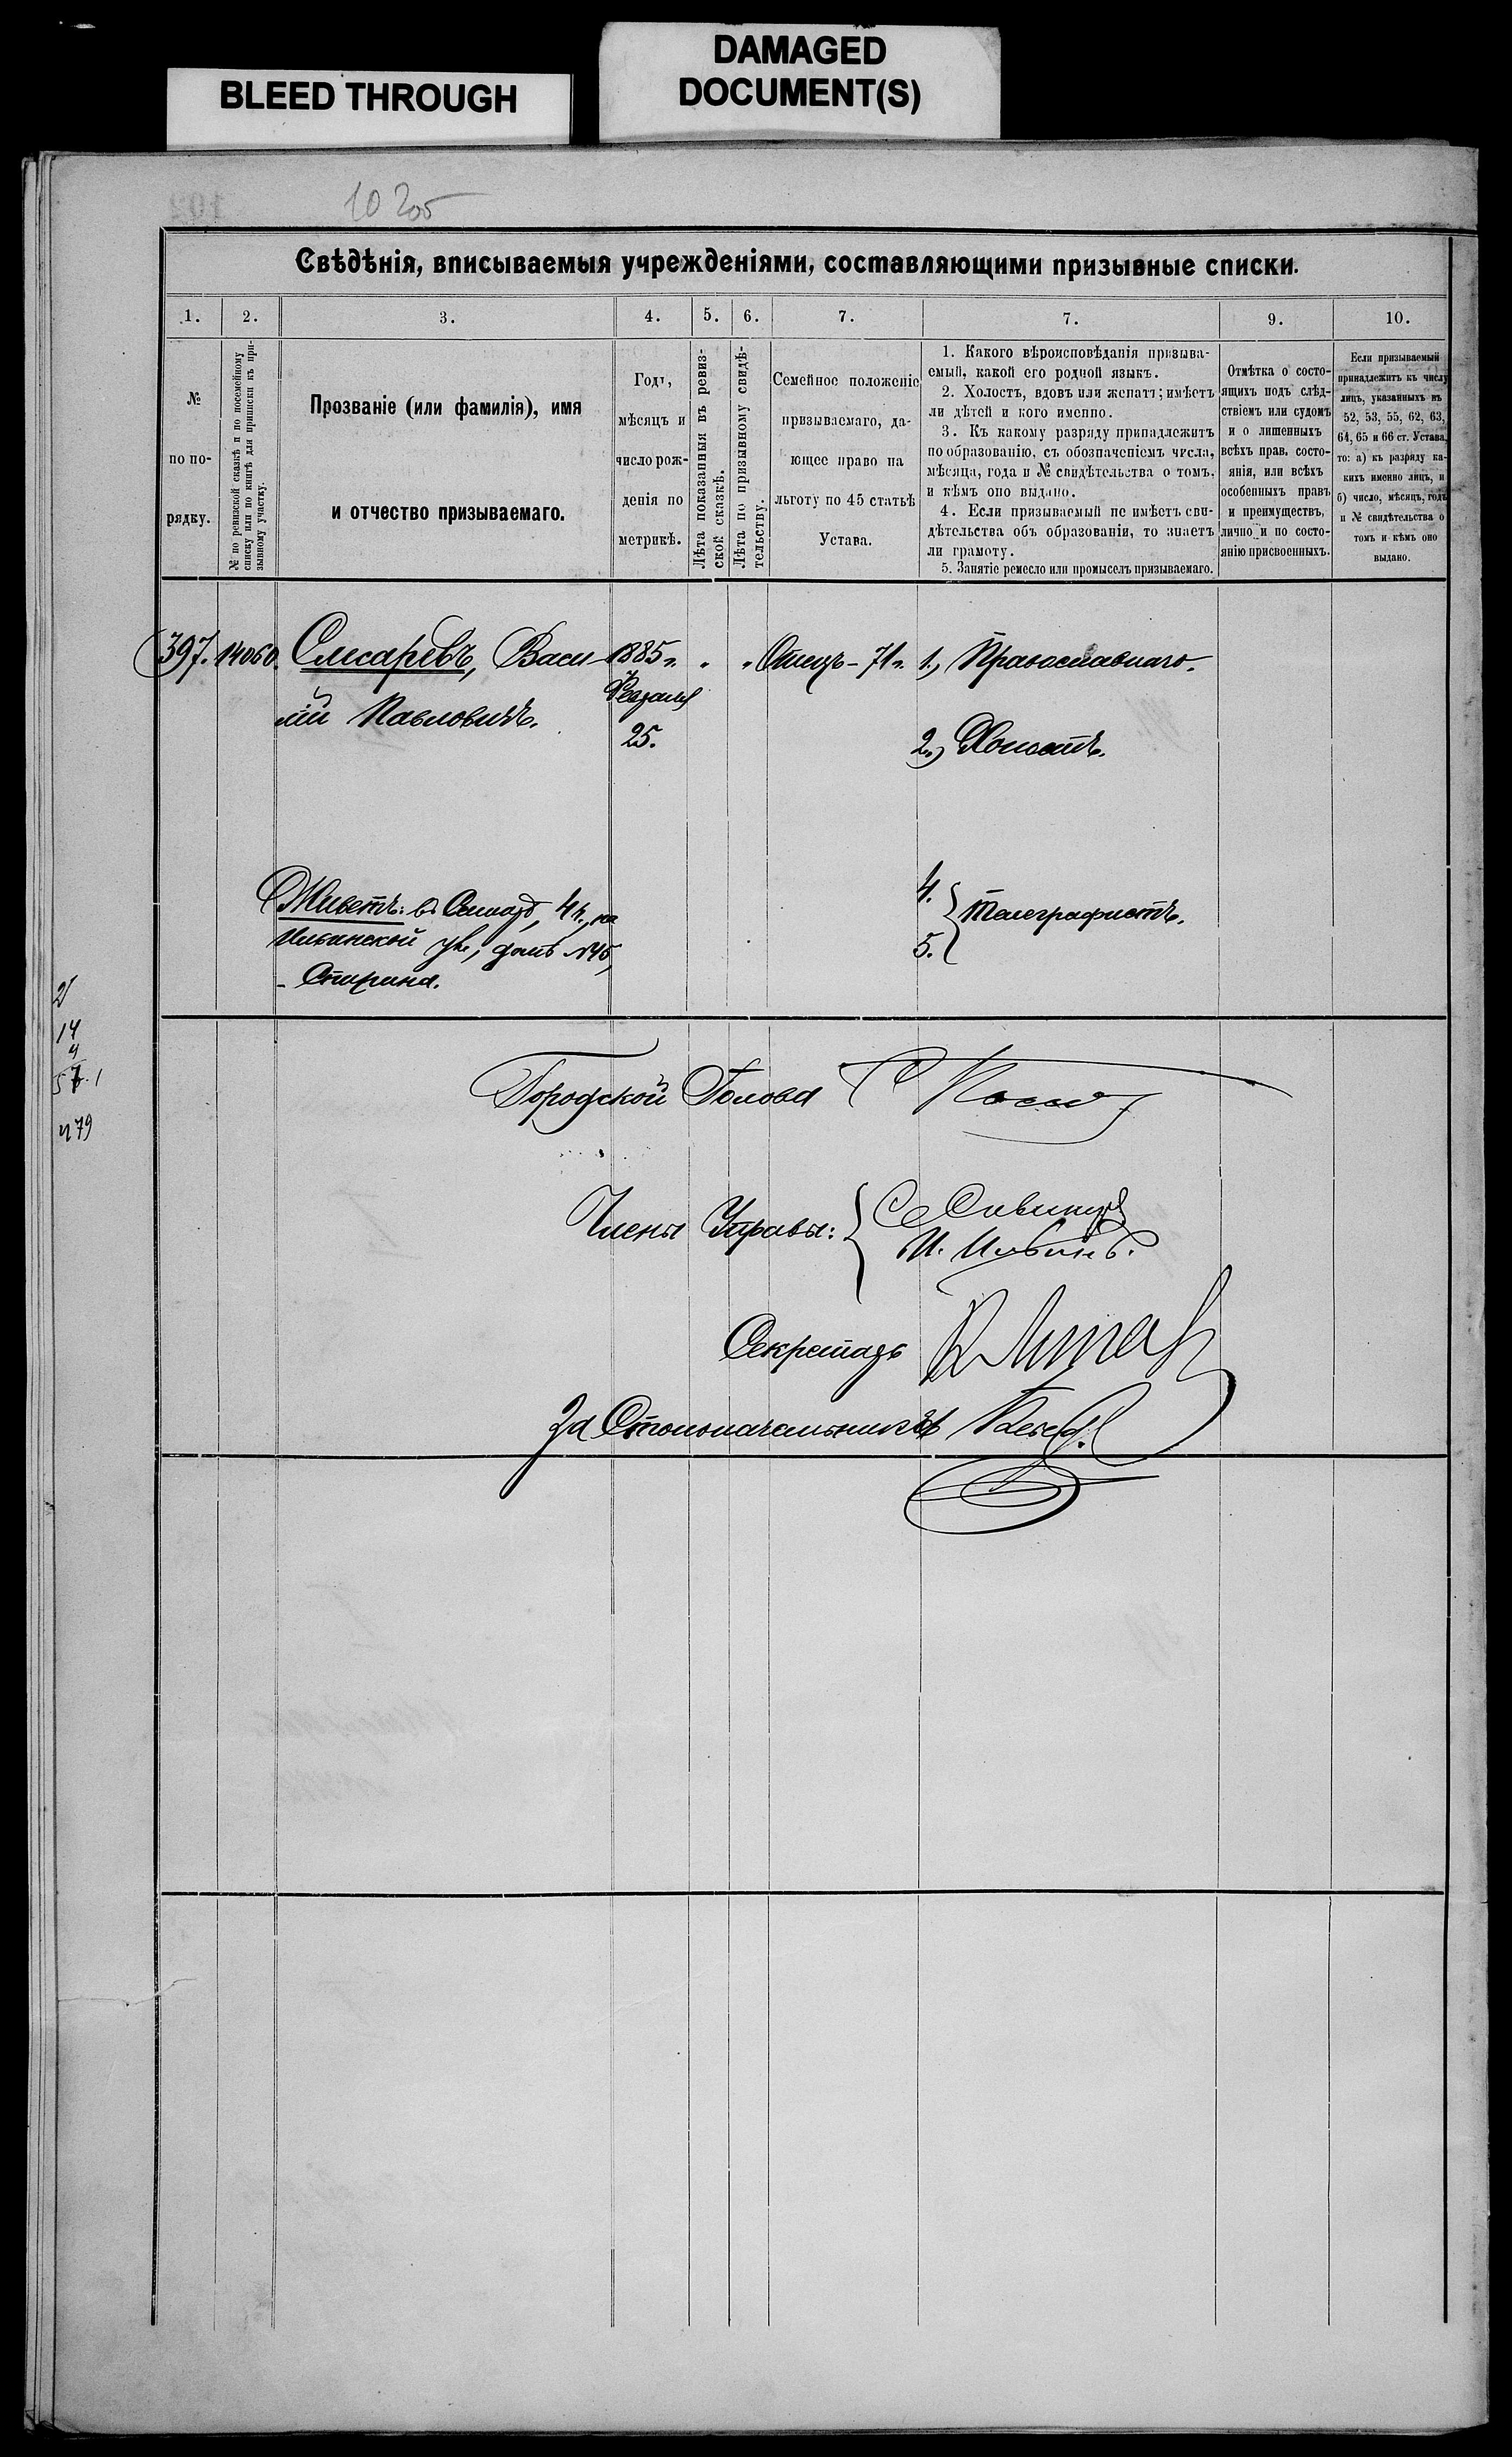 BLEED THROUGH
DAMAGED
DOCUMENT(S)
Свѣдѣнія, вписываемыя учрежденіями, составляющими призывные списки.
1.
2.
3.
4.
5.
6.
7.
7.
9.
10.
№
по по-
рядку.
№ по ревизской сказкѣ и по посемейному
списку или по книгѣ для приписки къ при-
зывному участку.
Прозваніе (или фамилія), имя
и отчество призываемаго.
Годъ,
мѣсяцъ и
число рож-
денія по
метрикѣ.
Лѣта показанныя въ ревиз-
ской сказкѣ.
Лѣта по призывному свидѣ-
тельству.
Семейное положеніе
призываемаго, да-
ющее право на
льготу по 45 статьѣ
Устава.
1. Какого вѣроисповѣданія призыва-
емый, какой его родной языкъ.
2. Холостъ, вдовъ или женатъ; имѣетъ
ли дѣтей и кого именно.
3. Къ какому разряду принадлежитъ
по образованію, съ обозначеніемъ числа,
мѣсяца, года и № свидѣтельства о томъ,
и кѣмъ оно выдано.
4. Если призываемый не имѣетъ сви-
дѣтельства объ образованіи, то знаетъ
ли грамоту.
5. Занятіе ремесло или промыселъ призываемаго.
Отмѣтка о состо-
ящихъ подъ слѣд-
ствіемъ или судомъ
и о лишенныхъ
всѣхъ прав, состо-
янія, или всѣхъ
особенныхъ правъ
и преимуществъ,
лично и по состо-
янію присвоенныхъ.
Если призываемый
принадлежитъ къ числу
лицъ, указанныхъ въ
52, 53, 55, 62, 63,
64, 65 и 66 ст. Устава,
то: а) къ разряду ка-
кихъ именно лицъ, и
б) число, мѣсяцъ, годъ
и № свидѣтельства о
томъ и кѣмъ оно
выдано.
397. 14060. Слесаревъ, Васи- 1885 г. " " Отецъ - 71 г. 1.) Православнаго.
лій Павловичъ.
Февраля
25.
2.) Холостъ.
Живетъ: въ Самарѣ, 4 ч., на
Ильинской ул., домъ №45,
- Спирина.
4.
5.
Телеграфистъ.
2
14
4
479
Городской Голова
Члены Управы:
Секретарь
За Столоначальника